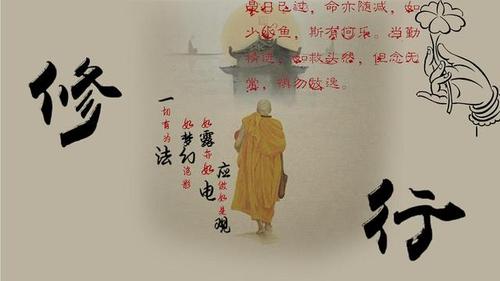 修
行
是日已过，命亦随减，如
小水鱼，斯有何乐。当勤
精进，如救头然，但念无
常，慎勿放逸。
一切有为法
如梦幻泡影
如露亦如电
应做如是观